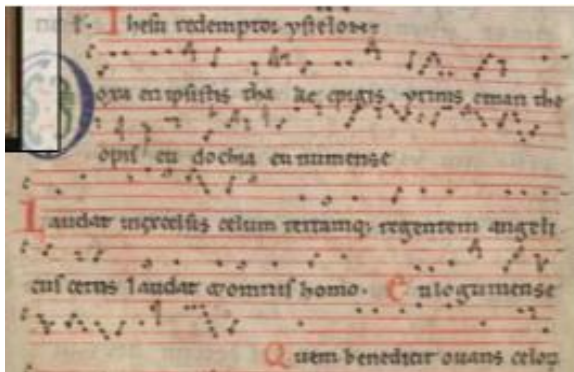 Ihesu redemptor
oxa en ipsistis the ke epigis yrinis en an tho
opis eu dochia eu numense
Laudat in excelsis celum terramq; regentem angeli
cus cetus laudat & omnis homo. Eulogumense
Quem benedicit ouans celoꝝ